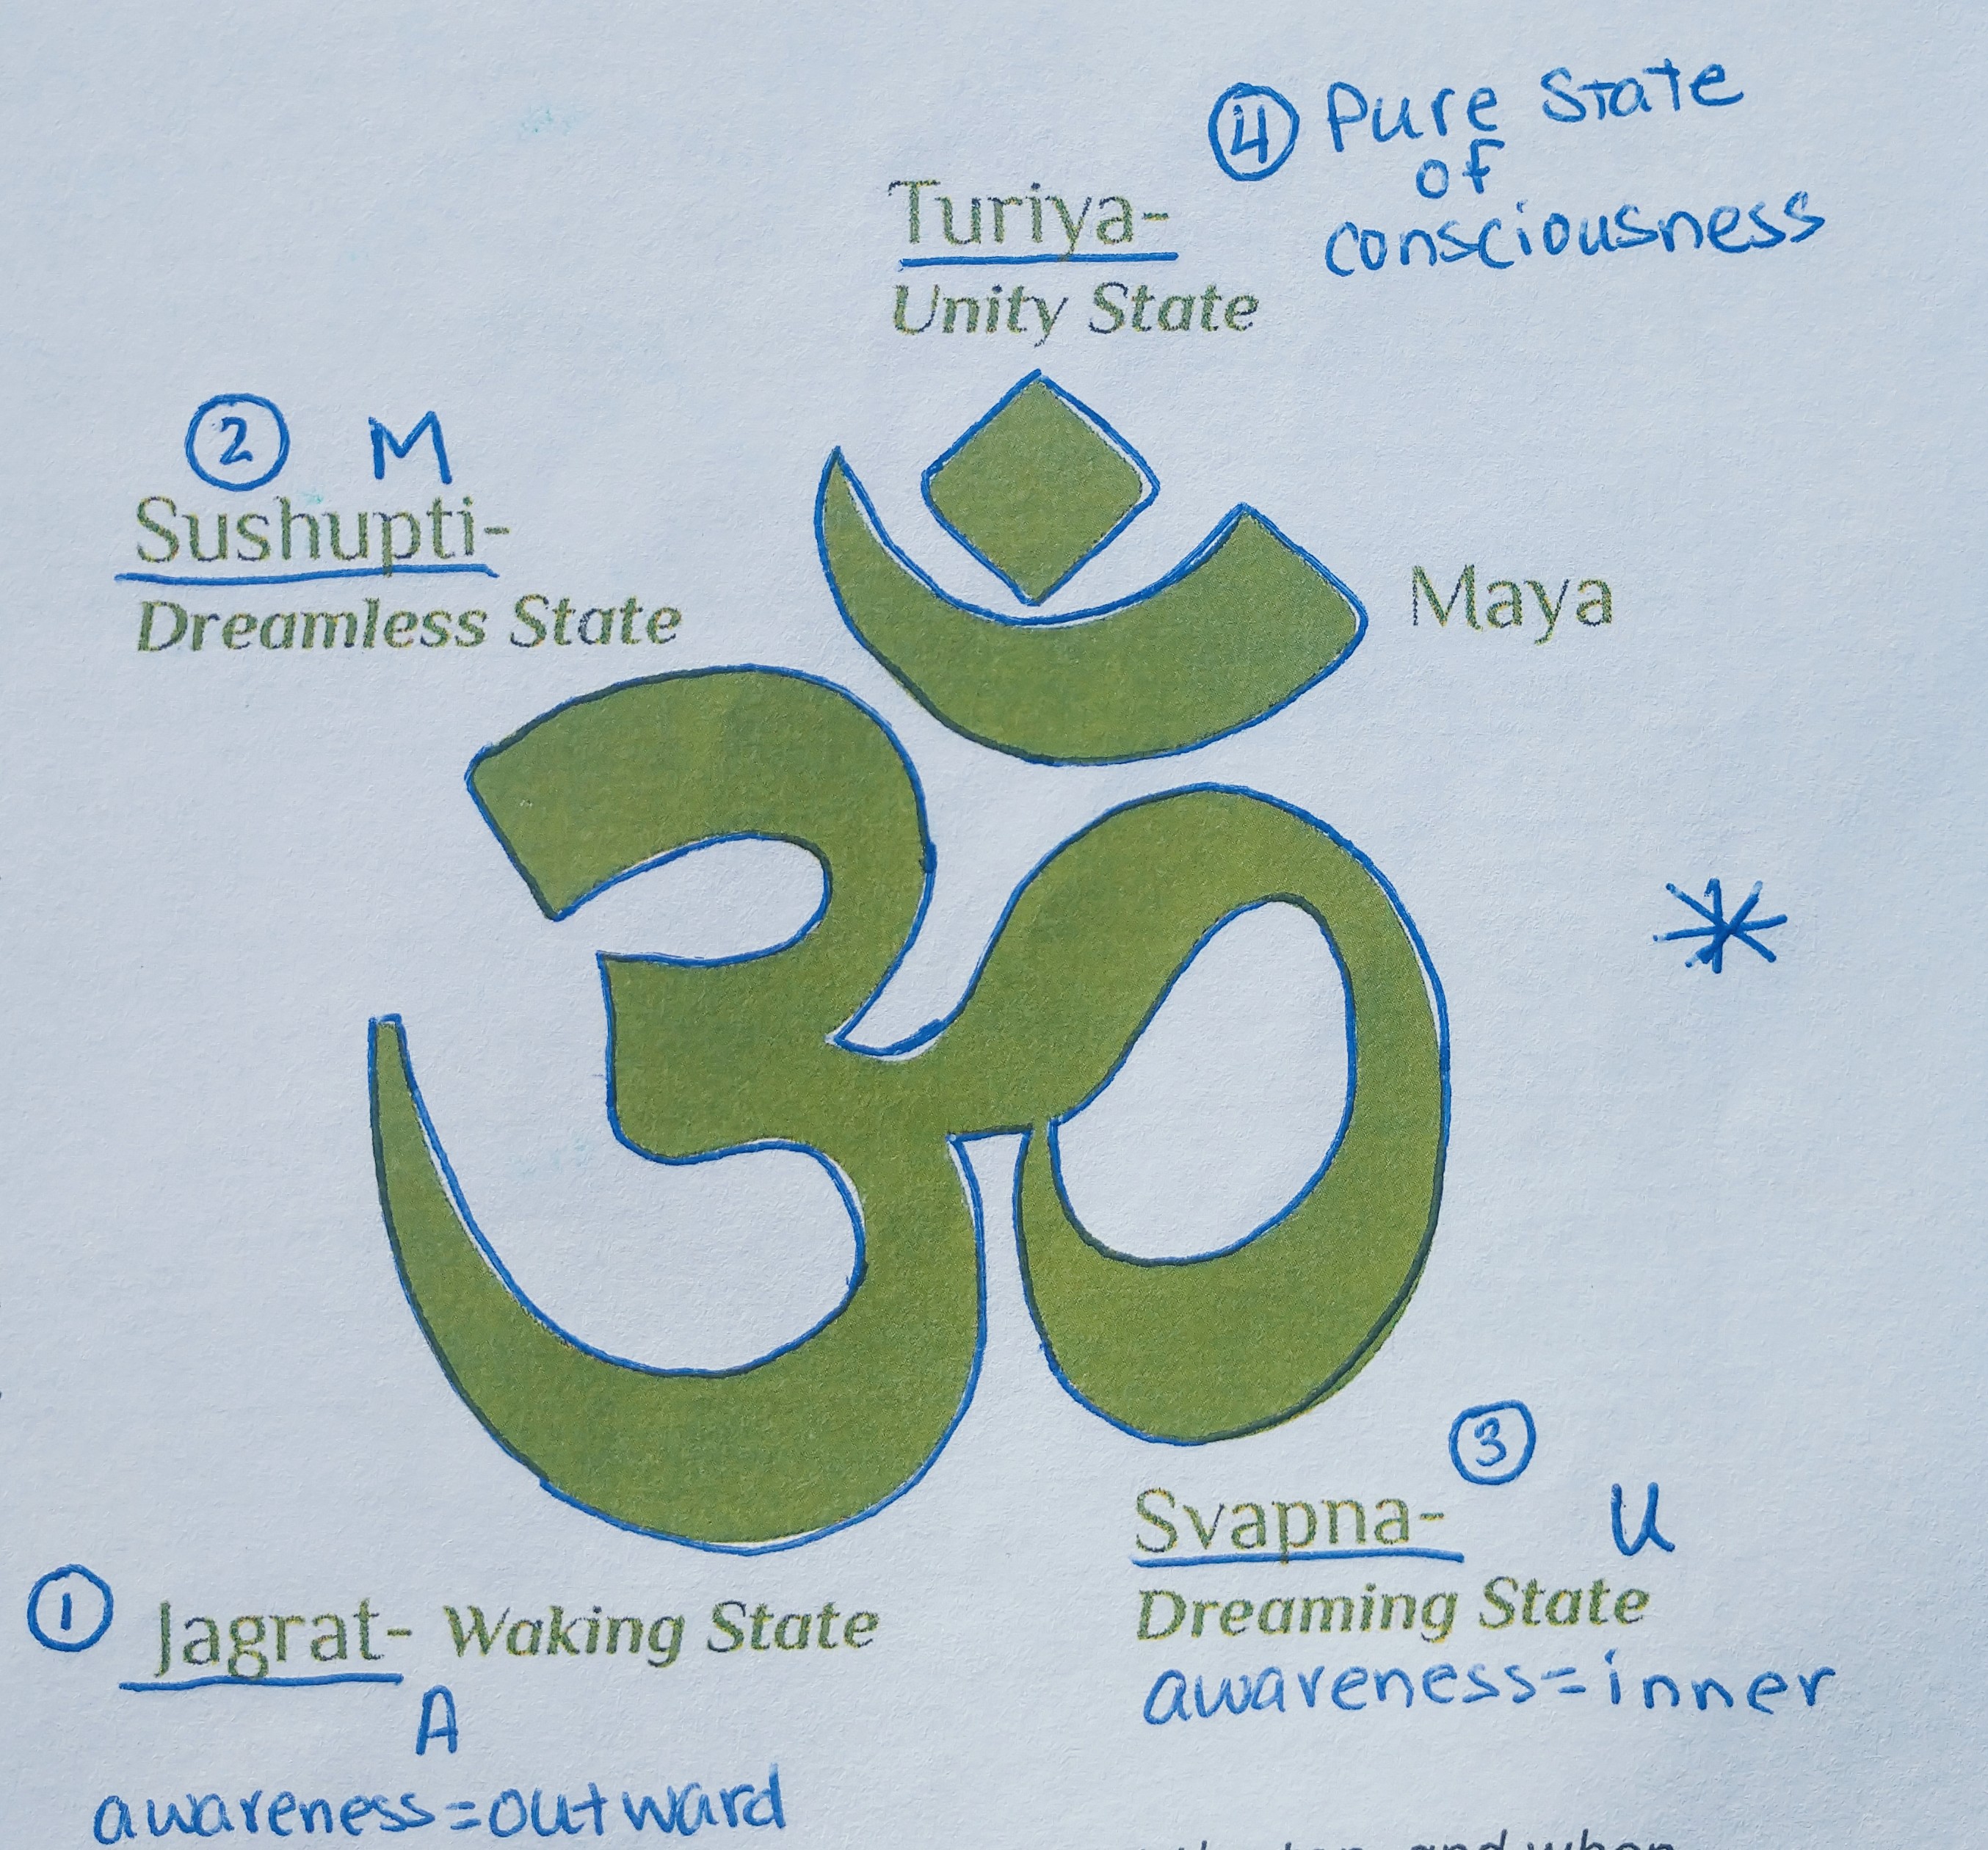 ④ Pure State
of
consciousness
Turiya-
Unity State
② M
Sushupti-
Dreamless State
Maya
*
③
Svapna- U
Dreaming State
awareness=inner
① Jagrat- Waking State
A
awareness=outward
and when